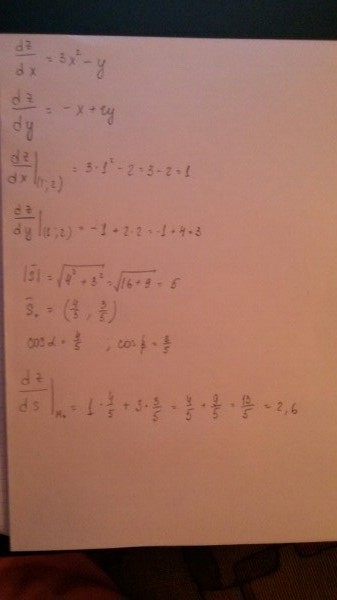 dz/dx = 3x² - y
dz/dy = -x + 2y
dz/dx |(1;2) = 3·1² - 2 = 3 - 2 = 1
dz/dy |(1;2) = -1 + 2·2 = -1 + 4 = 3
|S̄| = √(4² + 3²) = √(16 + 9) = 5
S̄₀ = (4/5 ; 3/5)
cos α = 4/5 ; cos β = 3/5
dz/ds |M₀ = 1·4/5 + 3·3/5 = 4/5 + 9/5 = 13/5 = 2,6